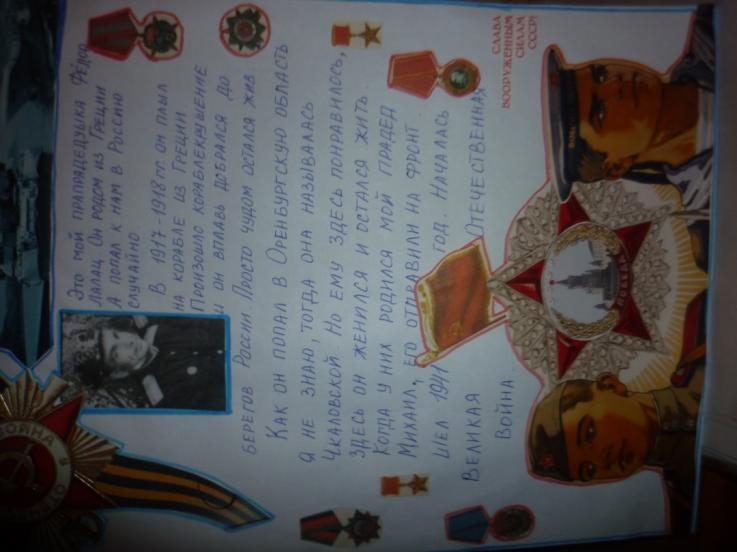 Это мой прапрадедушка Фёдор
Лалац. Он родом из Греции
А попал к нам в Россию
случайно.
В 1917-1918 гг. он плыл
на корабле из Греции.
Произошло кораблекрушение
и он вплавь добрался до
берегов России. Просто чудом остался жив
Как он попал в Оренбургскую область
я не знаю, тогда она называлась
Чкаловской. Но ему здесь понравилось,
здесь он женился и остался жить
Когда у них родился мой прадед
Михаил, его отправили на фронт
Шёл 1941 год. Началась
Великая Отечественная
война
СЛАВА
ВООРУЖЕННЫМ
СИЛАМ
СССР!
ПОБЕДА
ВОЙНА